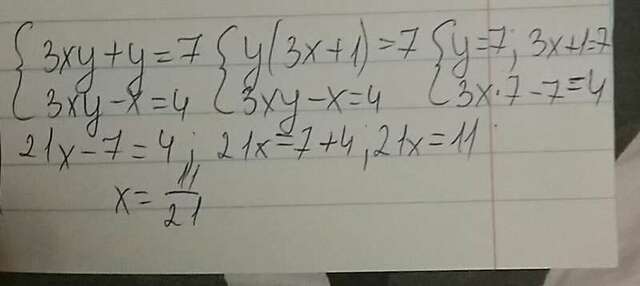 {3xy+y=7 {y(3x+1)=7 {y=7; 3x+1=7
{3xy-x=4 {3xy-x=4 {3x·7-7=4
21x-7=4; 21x=7+4; 21x=11
x=11/21